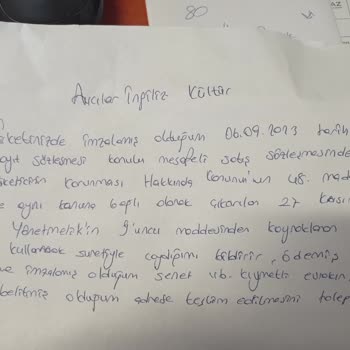 80
Avcılar İngiliz Kültür
imzalamış olduğum 06.09.2023 tarih
sözleşmesi konulu mesafeli satış sözleşmesinde
korunması Hakkında Kanunu'nun 48. mad
aynı kanuna bağlı olarak çıkarılan 27 Kası
Yönetmelik'in 9'uncu maddesinden kaynaklanan
kullanmak suretiyle caydığımı bildirir, ödemiş
ve imzalamış olduğum senet vb. kıymetli evrakın
belirtmiş olduğum adrese teslim edilmesini talep